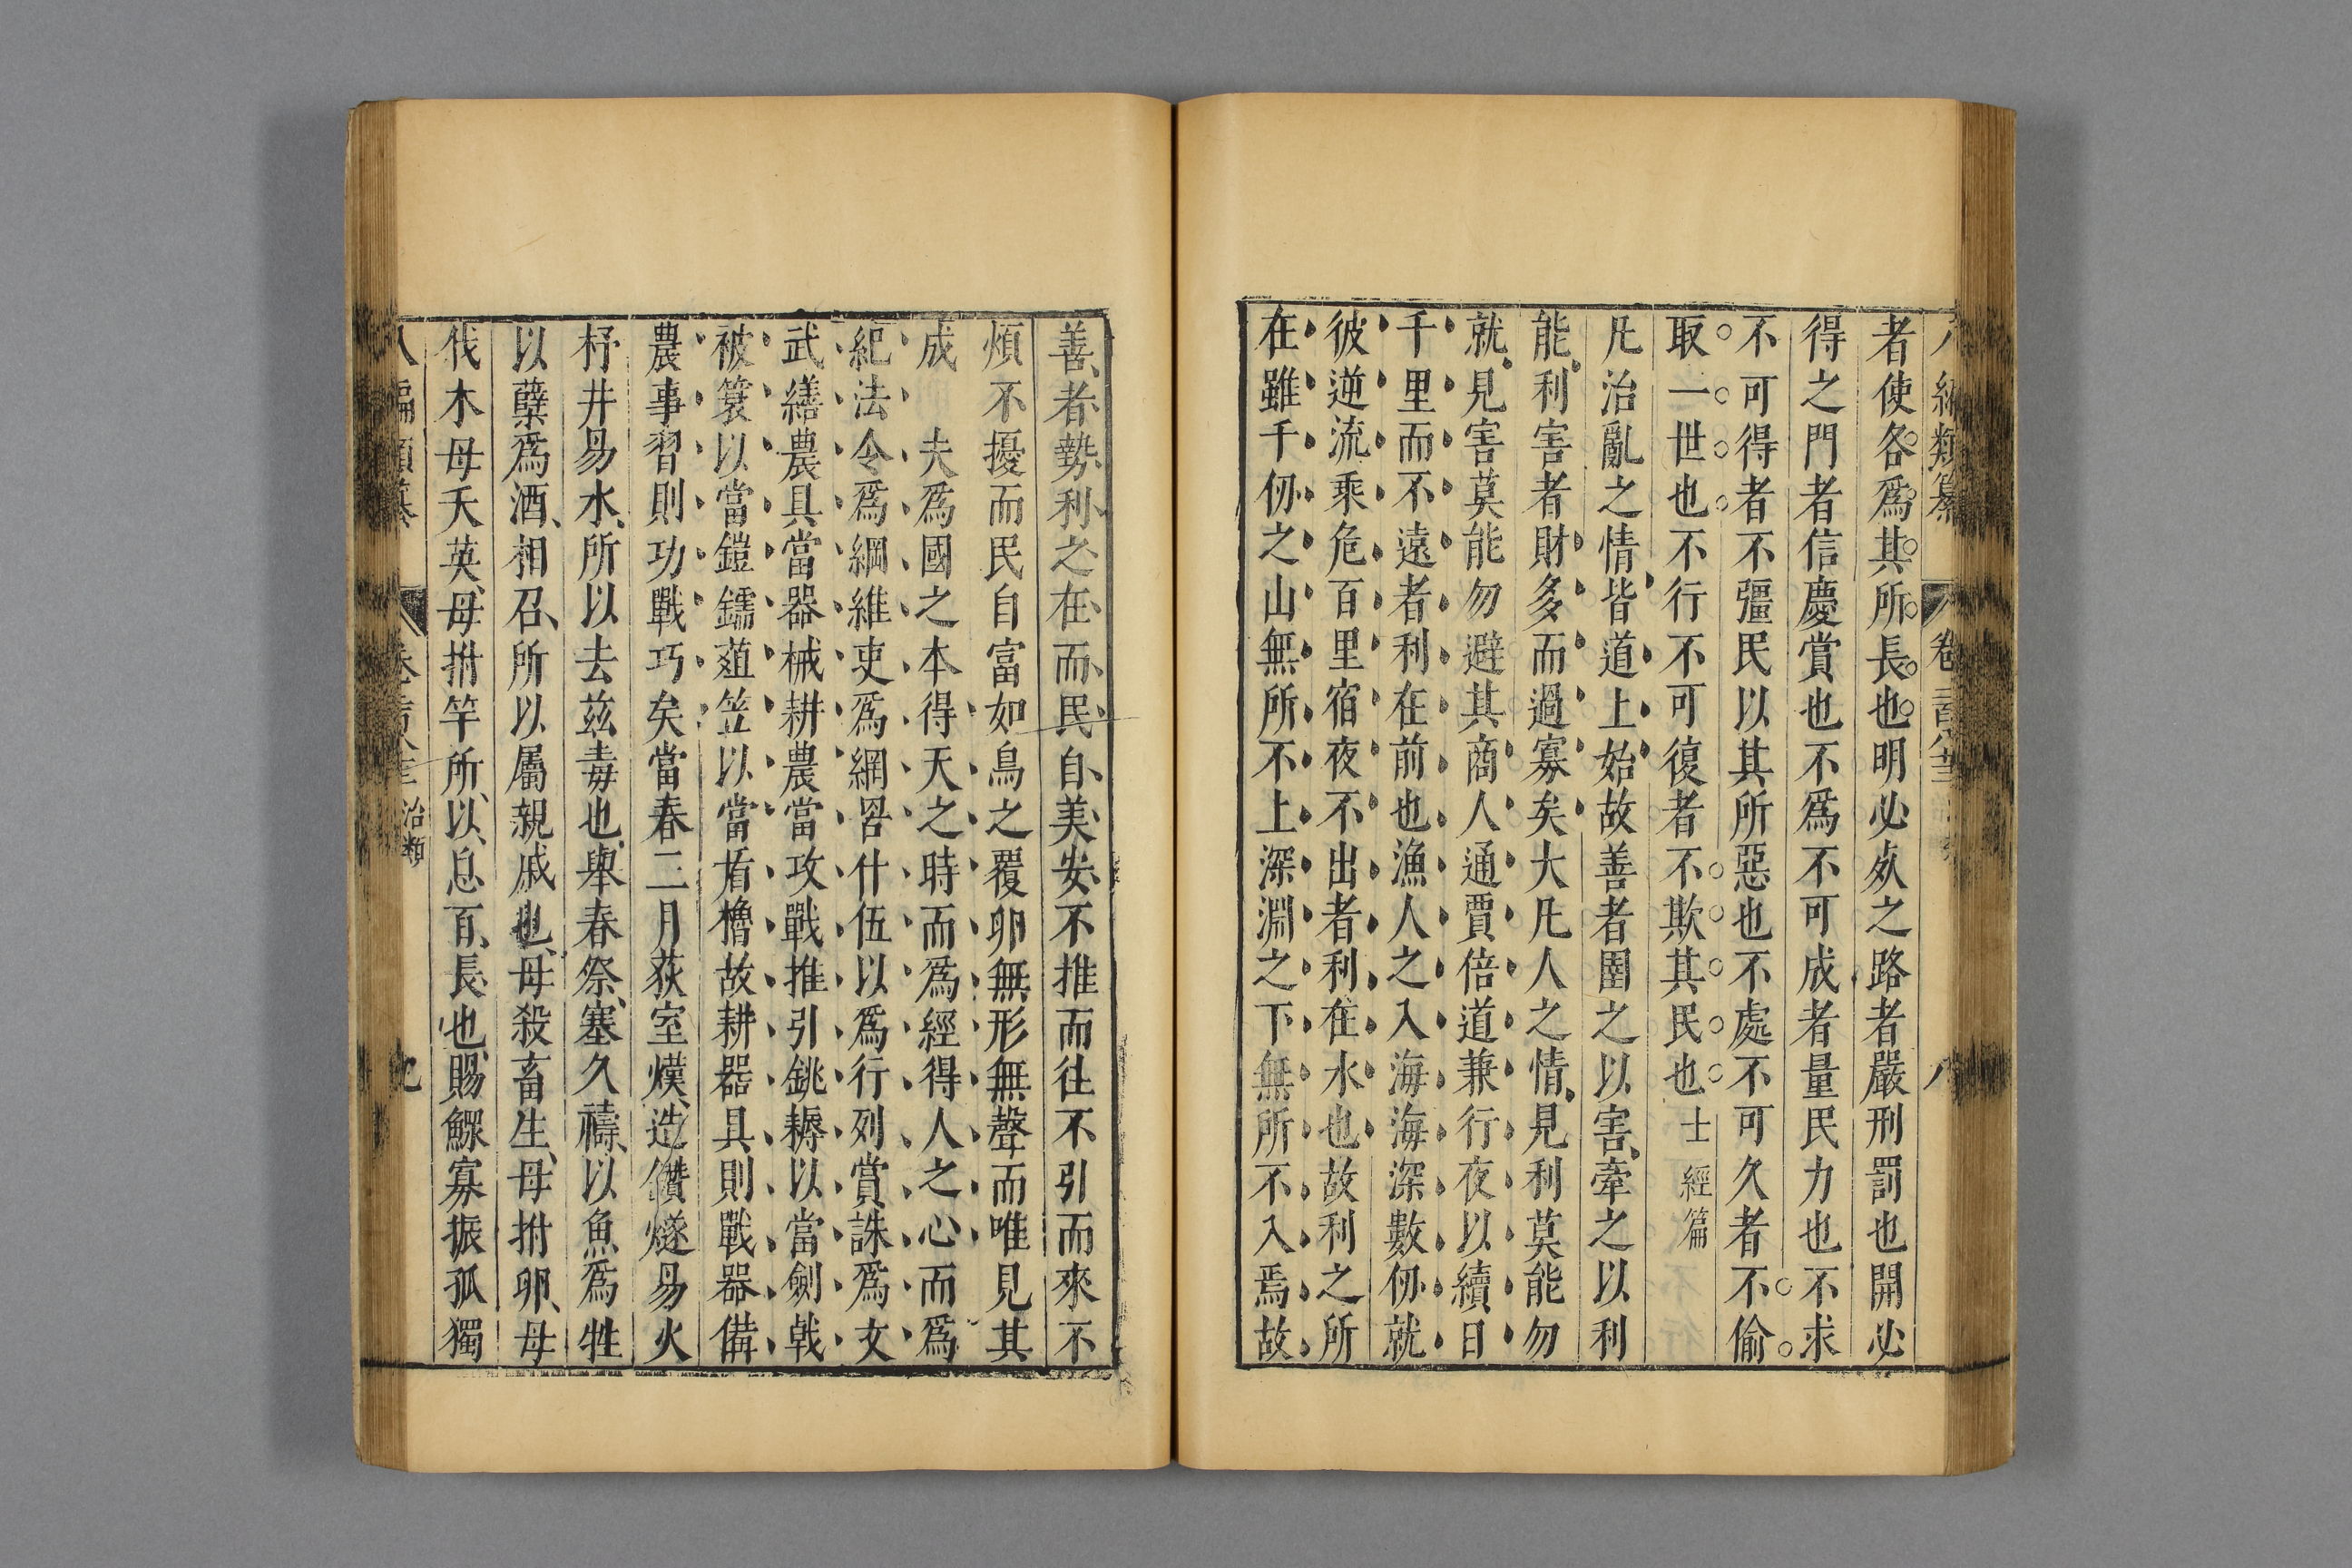 八編類纂 卷二百八十三 八
者使各爲其所長也明必死之路者嚴刑罰也開必
得之門者信慶賞也不爲不可成者量民力也不求
不可得者不彊民以其所惡也不處不可久者不偷
取一世也不行不可復者不欺其民也士經篇
凡治亂之情皆道上始故善者圉之以害牽之以利
能利害者財多而過寡矣大凡人之情見利莫能勿
就見害莫能勿避其商人通賈倍道兼行夜以續日
千里而不遠者利在前也漁人之入海海深數仞就
彼逆流乘危百里宿夜不出者利在水也故利之所
在雖千仞之山無所不上深淵之下無所不入焉故
善者勢利之在而民自美安不推而往不引而來不
煩不擾而民自富如鳥之覆卵無形無聲而唯見其
成 夫爲國之本得天之時而爲經得人之心而爲
紀法令爲綱維吏爲網罟什伍以爲行列賞誅爲文
武繕農具當器械耕農當攻戰推引銚耨以當劍戟
被簑以當鎧鑐菹笠以當盾櫓故耕器具則戰器備
農事習則功戰巧矣當春二月荻室熯造鑽燧易火
杼井易水所以去茲毒也舉春祭塞久禱以魚爲牲
以糵爲酒相召所以屬親戚也毋殺畜生毋拊卵毋
伐木毋夭英毋拊竿所以息百長也賜鰥寡振孤獨
八編類纂 治類 九